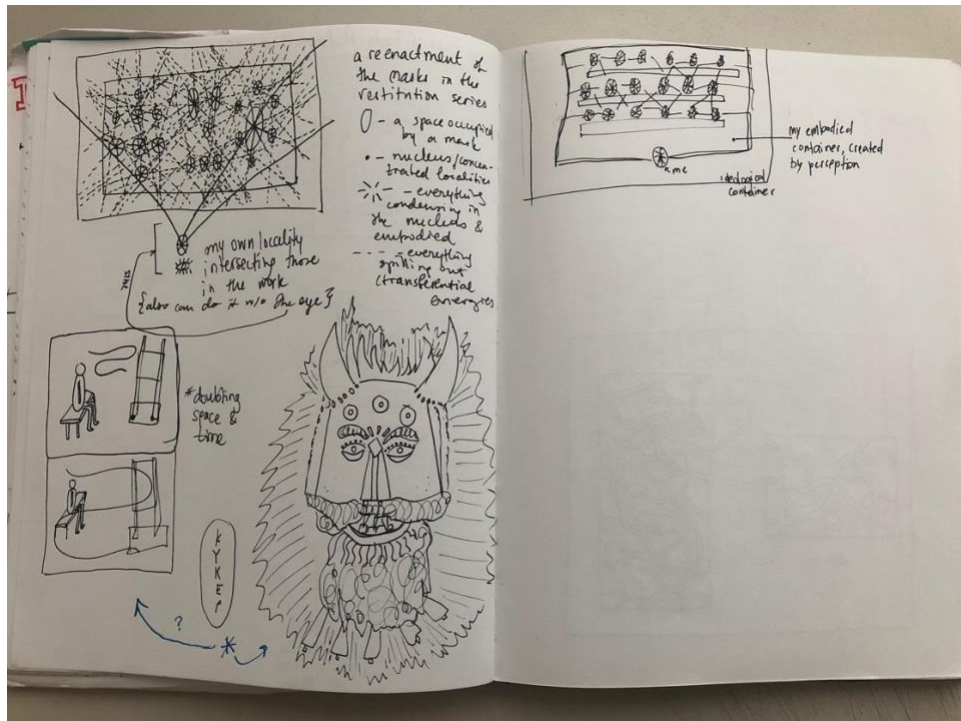 a reenactment of
the masks in the
restitution series
0 - a space occupied
by a mask
• - nucleus/concen-
trated localities
- everything
condensing in
the nucleus &
embodied
- - - - everything
spilling out
(transferential
energies
my own locality
intersecting those
in the work
{also can do it w/o the eye}
*doubling
space &
time
?
me
my embodied
container, created
by perception
container